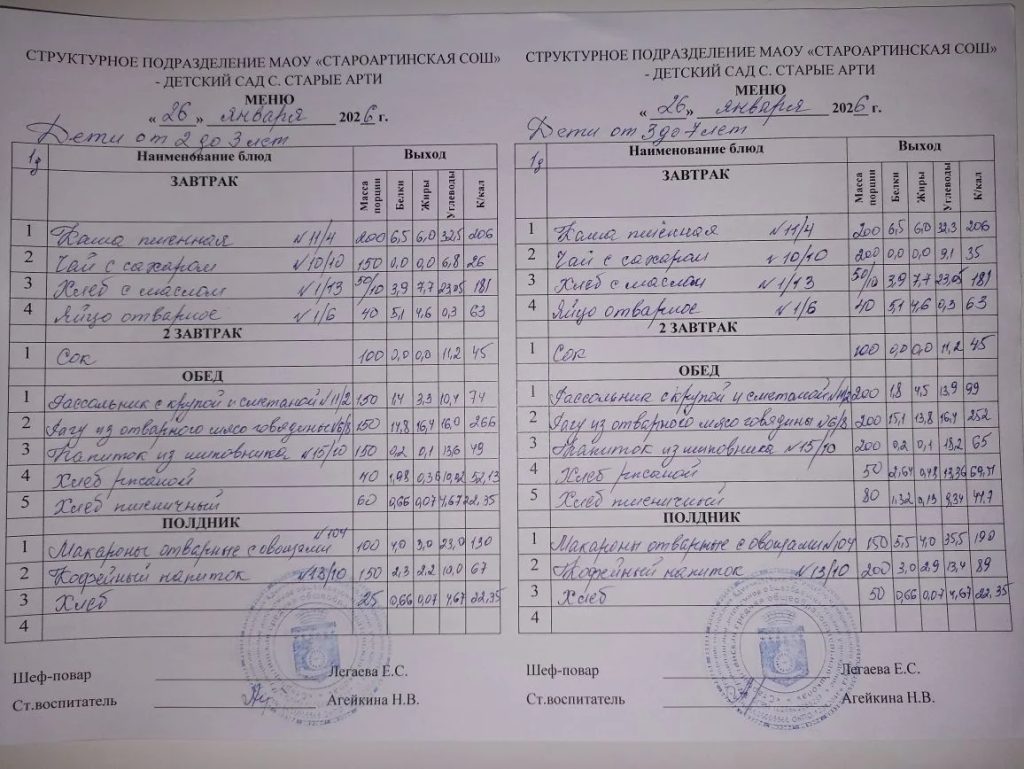 СТРУКТУРНОЕ ПОДРАЗДЕЛЕНИЕ МАОУ «СТАРОАРТИНСКАЯ СОШ»
- ДЕТСКИЙ САД С. СТАРЫЕ АРТИ
МЕНЮ
« 26 » января 2026 г.
Дети от 2 до 3 лет
1д Наименование блюд Выход
ЗАВТРАК Масса порции Белки Жиры Углеводы К/кал
1 Каша пшенная №11/4 200 6,5 6,0 32,5 206
2 Чай с сахаром №10/10 150 0,0 0,0 6,8 26
3 Хлеб с маслом №1/13 50/10 3,9 7,7 23,05 181
4 Яйцо отварное №1/6 40 5,1 4,6 0,3 63
2 ЗАВТРАК
1 Сок 100 0,0 0,0 11,2 45
ОБЕД
1 Рассольник с крупой и сметаной №11/2 150 1,4 3,3 10,4 74
2 Рагу из отварного мясо говядины №6/8 150 14,8 16,4 16,0 266
3 Напиток из шиповника №15/10 150 0,2 0,1 13,6 49
4 Хлеб ржаной 40 1,98 0,36 52,13
5 Хлеб пшеничный 60 0,66 0,07 4,67 22,35
ПОЛДНИК
1 Макароны отварные с овощами №104 100 4,0 3,0 23,0 130
2 Кофейный напиток №13/10 150 2,3 2,2 10,0 67
3 Хлеб 25 0,66 0,07 4,67 22,35
4
Шеф-повар Легаева Е.С.
Ст.воспитатель Агейкина Н.В.
СТРУКТУРНОЕ ПОДРАЗДЕЛЕНИЕ МАОУ «СТАРОАРТИНСКАЯ СОШ»
- ДЕТСКИЙ САД С. СТАРЫЕ АРТИ
МЕНЮ
« 26 » января 2026 г.
Дети от 3 до 7 лет
1д Наименование блюд Выход
ЗАВТРАК Масса порции Белки Жиры Углеводы К/кал
1 Каша пшенная №11/4 200 6,5 6,0 32,3 206
2 Чай с сахаром №10/10 200 0,0 0,0 9,1 35
3 Хлеб с маслом №1/13 50/10 3,9 7,7 23,05 181
4 Яйцо отварное №1/6 40 5,1 4,6 0,3 63
2 ЗАВТРАК
1 Сок 100 0,0 0,0 11,2 45
ОБЕД
1 Рассольник с крупой и сметаной №11/2 200 1,8 4,5 13,9 99
2 Рагу из отварного мясо говядины №6/8 200 15,1 13,8 16,4 252
3 Напиток из шиповника №15/10 200 0,2 0,1 18,2 65
4 Хлеб ржаной 50 2,64 0,48 13,36
5 Хлеб пшеничной 80 1,32 0,13 9,34 41,7
ПОЛДНИК
1 Макароны отварные с овощами №104 150 5,5 4,0 35,5 190
2 Кофейный напиток №13/10 200 3,0 2,9 13,4 89
3 Хлеб 50 0,66 0,07 4,67 22,35
4
Шеф-повар Легаева Е.С.
Ст.воспитатель Агейкина Н.В.